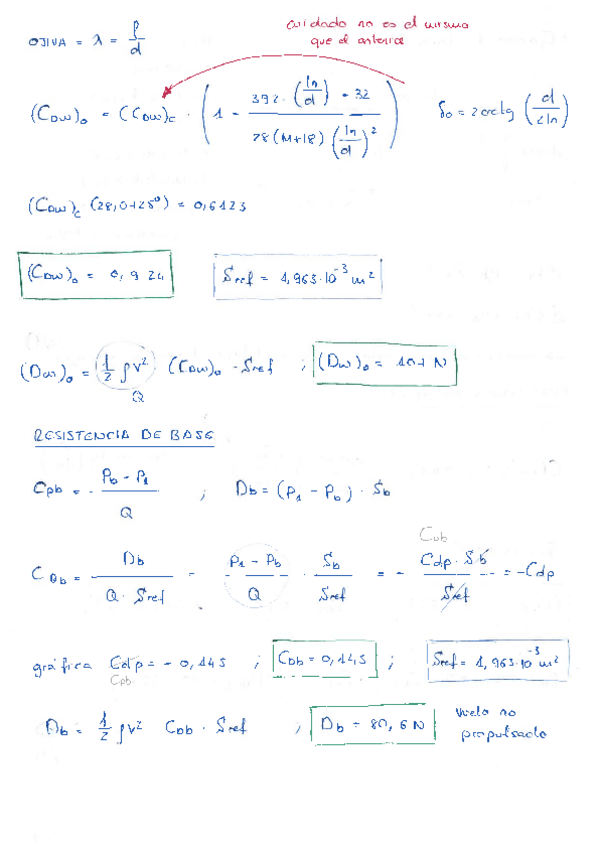 cuidado no es el mismo
que el anterior
OJIVA = λ = P/d
(CDW)o = (CDW)c · (1 - (392 · (ln/d) - 32) / (28 (M+18) (ln/d)²)) δo = 2 arctg (d/2ln)
(CDW)c (28,0725º) = 0,6123
(CDW)o = 0,924 Sref = 1,963·10⁻³ m²
(DW)o = (1/2 ρV²) (CDW)o · Sref ; (DW)o =
Q
RESISTENCIA DE BASE
Cpb = - (Pb - P1) / Q ; Db = (P1 - Pb) · Sb
CDb = Db / (Q · Sref) = (P1 - Pb) / Q · Sb / Sref = - (Cdp · Sb) / Sref = - Cdp
gráfica Cdp = - 0,145 ; CDb = 0,145 ; Sref = 1,963·10⁻³ m²
Cpb
Db = 1/2 ρV² CDb · Sref ; Db = 80,6 N vuelo no
propulsado